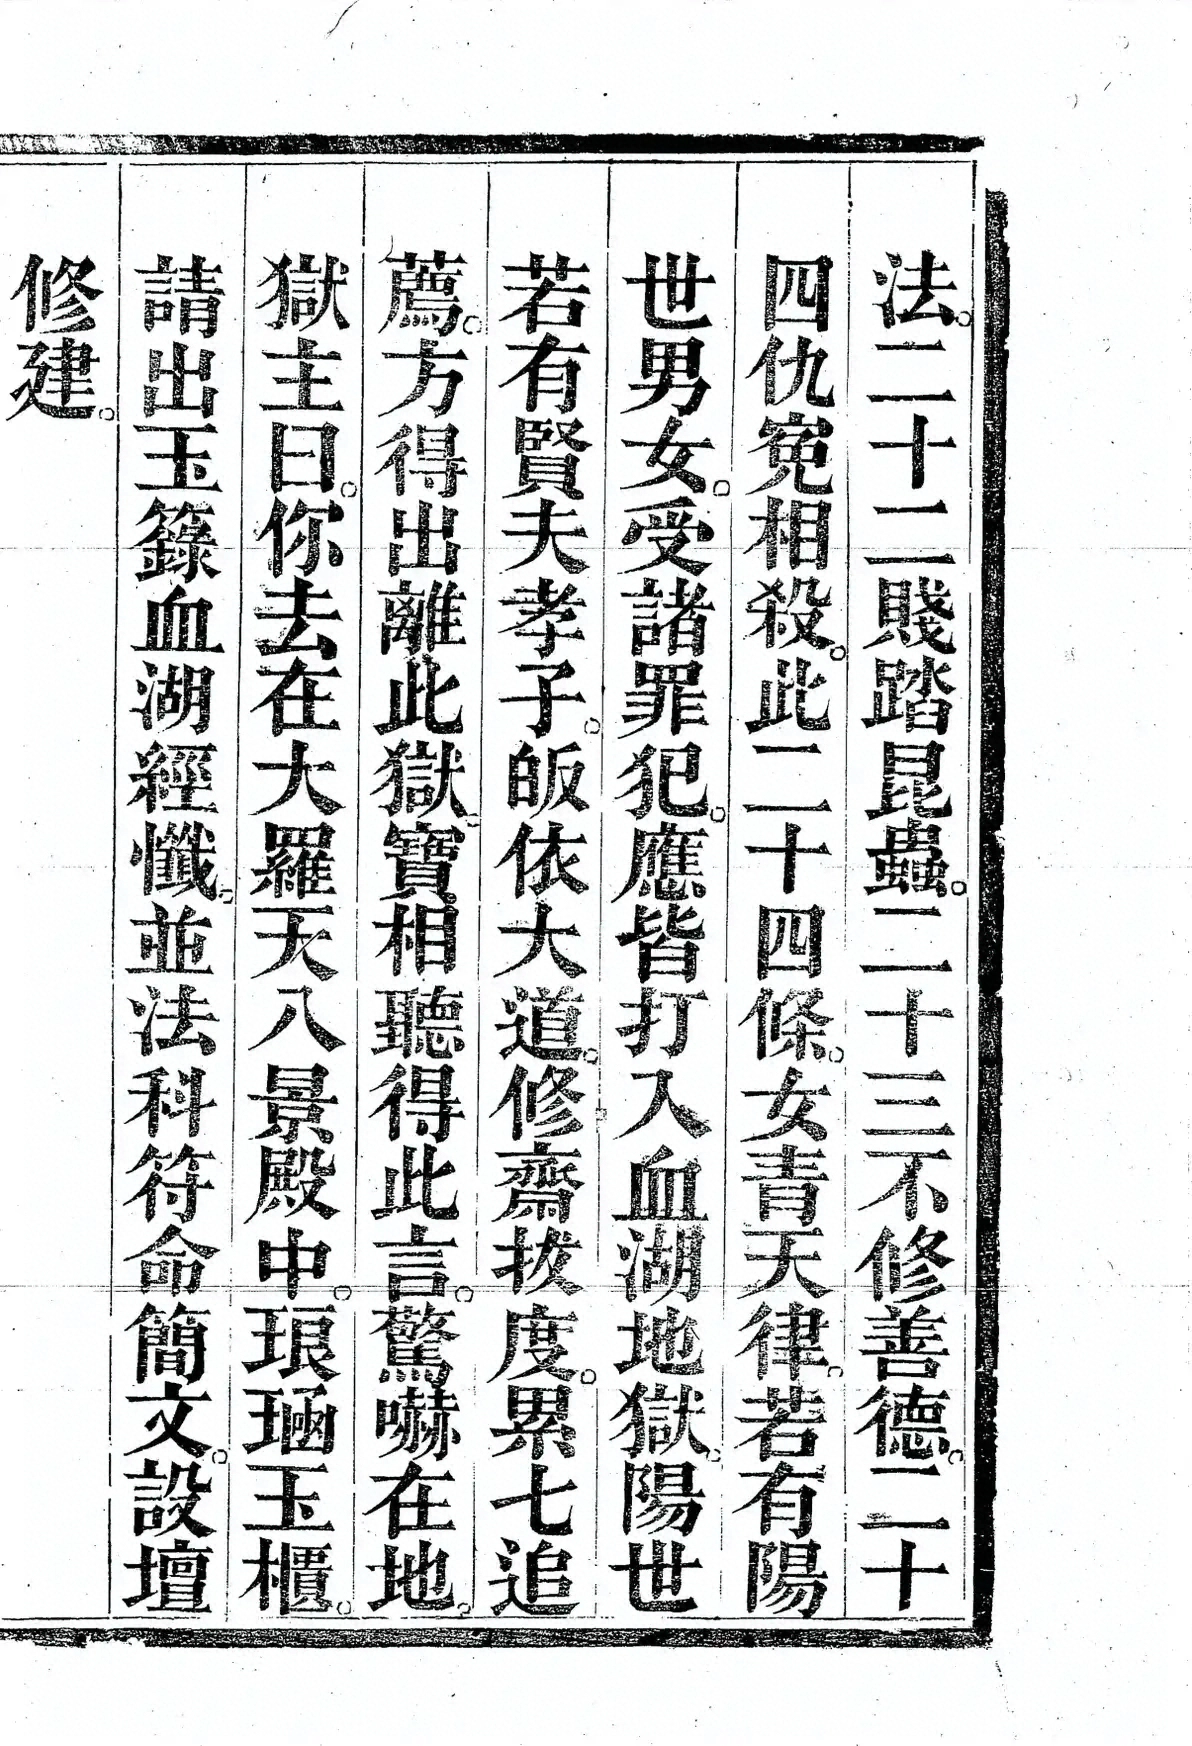 法。二十二賤踏昆蟲。二十三不修善德。二十
四仇寃相殺。此二十四條。女青天律。若有陽
世男女。受諸罪犯。應皆打入血湖地獄。陽世
若有賢夫孝子。皈依大道。修齋拔度。累七追
薦。方得出離此獄。寶相聽得此言。驚嚇在地。
獄主曰。你去在大羅天八景殿中。琅𤨏玉櫃。
請出玉籙血湖經懺。並法科符命簡文。設壇
修建。